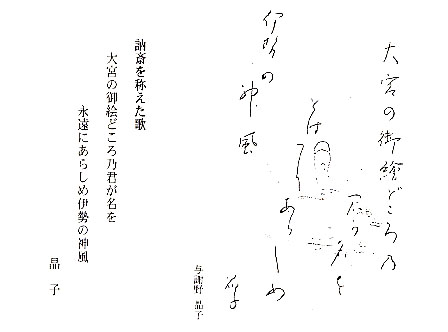 大宮の御繪どころ乃
君が名を
とはに
あらしめ
伊勢の神風
晶子
与謝野 晶子
訥斎を称えた歌
大宮の御絵どころ乃君が名を
永遠にあらしめ伊勢の神風
晶子